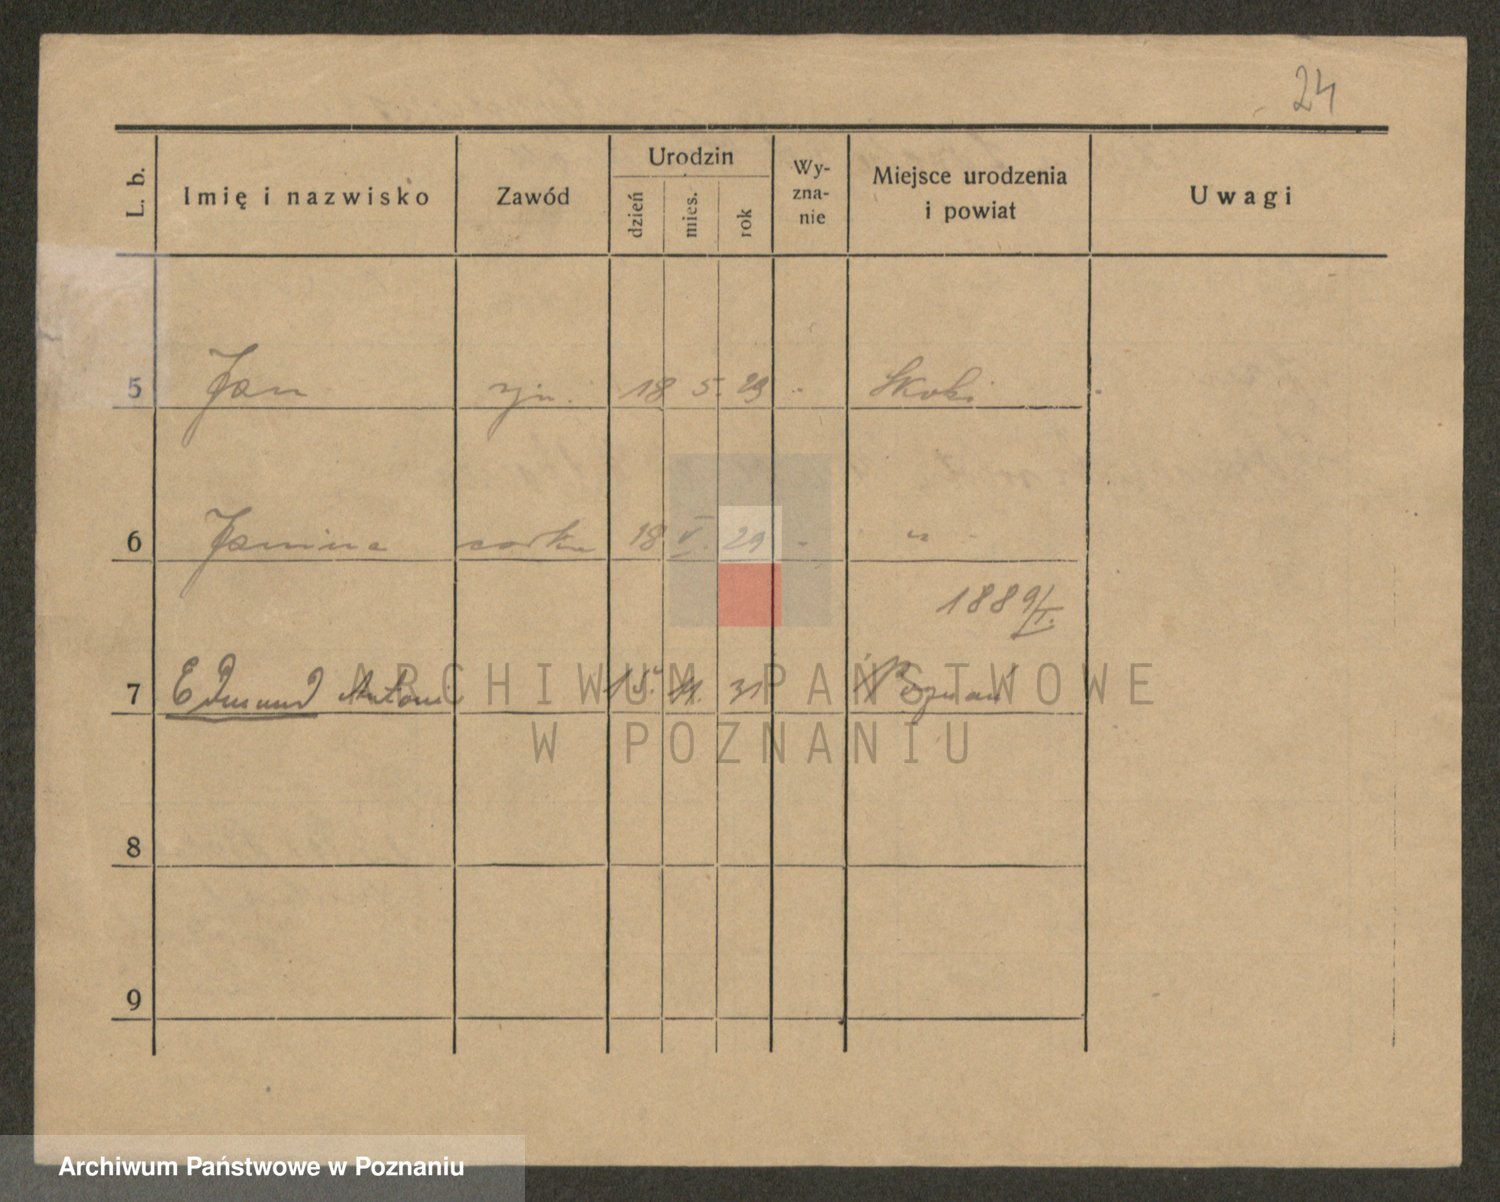 24
L. b.
Imię i nazwisko
Zawód
Urodzin
dzień
mies.
rok
Wy-
zna-
nie
Miejsce urodzenia
i powiat
Uwagi
5 Jan syn. 18 5. 29 - Skoki
6 Janina corka 18 V. 29 - "
1889/I.
7 Edmund Antoni 15. 11. 31 Poznań
8
9
ARCHIWUM PAŃSTWOWE
W POZNANIU
Archiwum Państwowe w Poznaniu